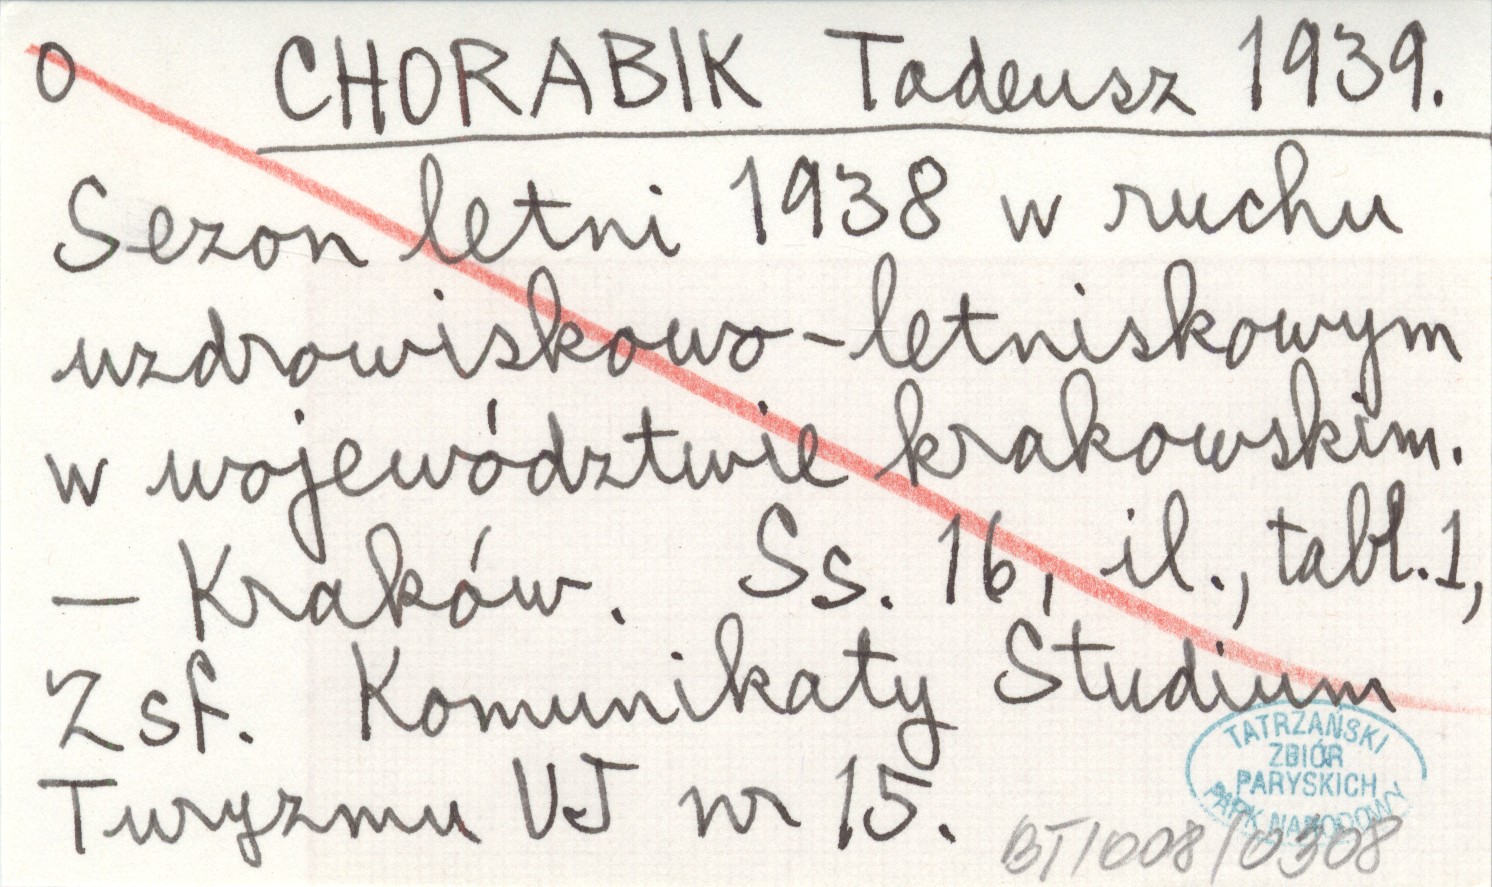 O CHORABIK Tadeusz 1939.
Sezon letni 1938 w ruchu
uzdrowiskowo-letniskowym
w województwie krakowskim.
— Kraków. Ss. 16, il., tabl. 1,
Zsf. Komunikaty Studium
Turyzmu UJ nr 15.
TATRZAŃSKI
ZBIÓR
PARYSKICH
PARK NARODOWY
BT/008/0308